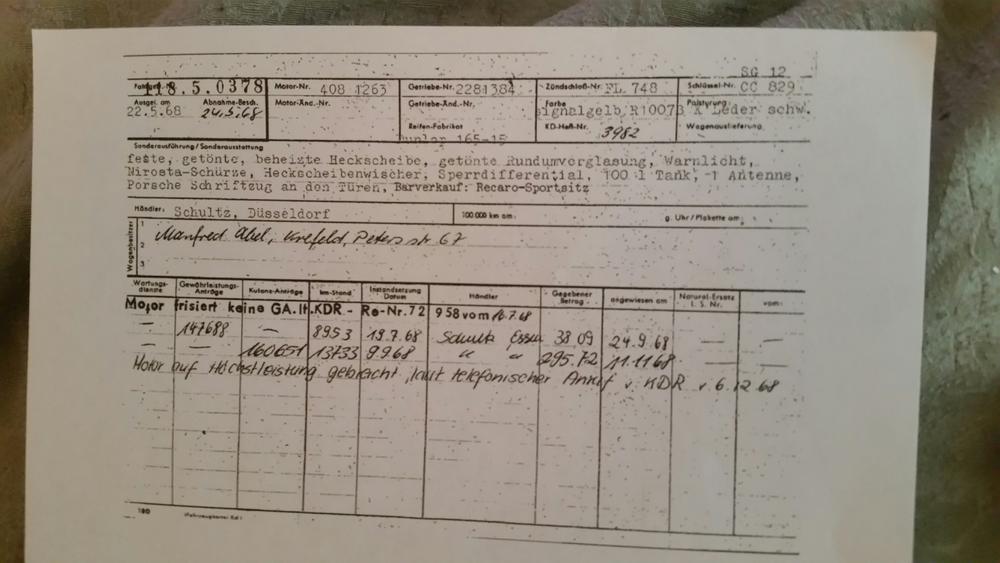 SG 12
118.5.0378 Motor-Nr. 408 1263 Getriebe-Nr. 2281384 Zündschloß-Nr. FL 748 Schlüssel-Nr. CC 829
Ausgel. am Abnahme-Besch. Motor-Änd.-Nr. Getriebe-Änd.-Nr. Farbe Polsterung
22.5.68 24.5.68 signalgelb R10073 K Leder schw.
Reifen-Fabrikat KD-Heft-Nr. 3982 Wagenauslieferung
Dunlop 165-15
Sonderausführung/Sonderausstattung
feste, getönte, beheizte Heckscheibe, getönte Rundumverglasung, Warnlicht,
Nirosta-Schürze, Heckscheibenwischer, Sperrdifferential, 100 l Tank, 1 Antenne,
Porsche Schriftzug an den Türen, Barverkauf: Recaro-Sportsitz
Händler: Schultz, Düsseldorf 100.000 km am: g. Uhr/Plakette am:
Wagenbesitzer
1 Manfred Abel, Krefeld, Petersstr. 67
2
3
Wartungsdienste Gewährleistungs-Anträge Kulanz-Anträge km-Stand Instandsetzung Datum Händler Gegebener Betrag angewiesen am Natural-Ersatz L. S. Nr. vom:
Motor frisiert keine GA. lt. KDR - Re-Nr. 72 958 vom 16.7.68
— 147688 — 8953 19.7.68 Schultz Essen 38 09 24.9.68 — —
— — 160651 13733 9.9.68 " " 295.72 11.11.68 — —
Motor auf Höchstleistung gebracht, laut telefonischer Anruf v. KDR v. 6.12.68
180